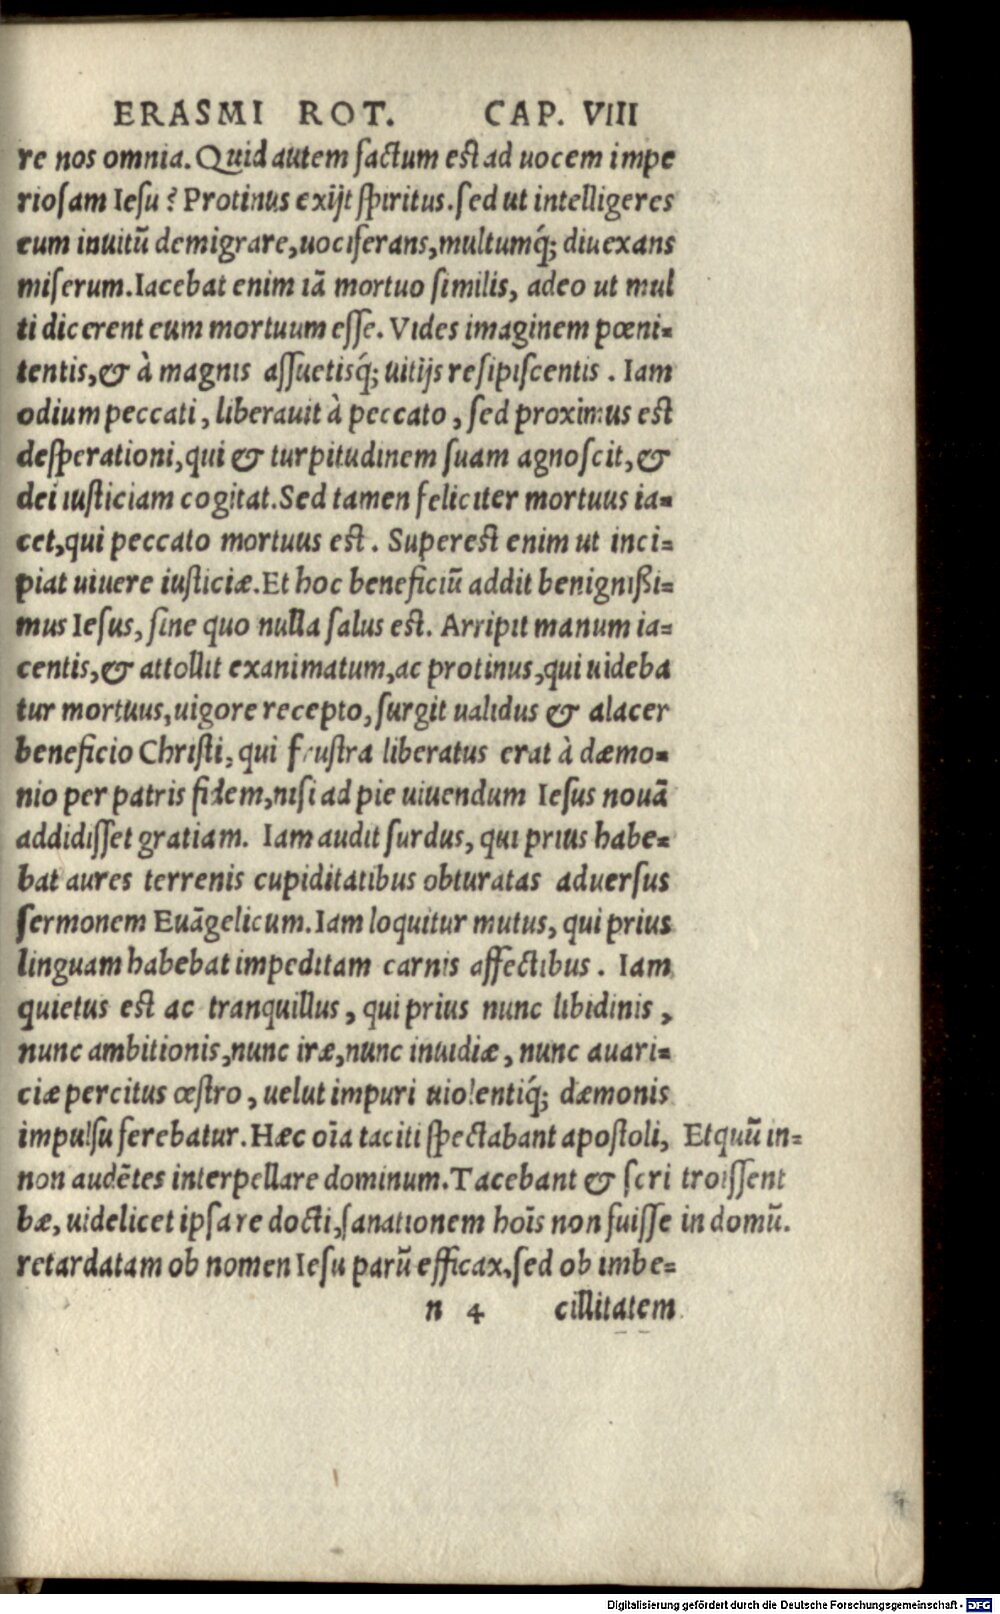 ERASMI ROT. CAP. VIII
re nos omnia. Quid autem factum est ad uocem impe
riosam Iesu? Protinus exijt spiritus. sed ut intelligeres
eum inuitū demigrare, uociferans, multumq́; diuexans
miserum. Iacebat enim iā mortuo similis, adeo ut mul
ti dicerent eum mortuum esse. Vides imaginem pœni=
tentis, & à magnis assuetisq́; uitijs resipiscentis. Iam
odium peccati, liberauit à peccato, sed proximus est
desperationi, qui & turpitudinem suam agnoscit, &
dei iusticiam cogitat. Sed tamen feliciter mortuus ia=
cet, qui peccato mortuus est. Superest enim ut inci=
piat uiuere iusticiæ. Et hoc beneficiū addit benignißi=
mus Iesus, sine quo nulla salus est. Arripit manum ia=
centis, & attollit exanimatum, ac protinus, qui uideba
tur mortuus, uigore recepto, surgit ualidus & alacer
beneficio Christi, qui frustra liberatus erat à dæmo=
nio per patris fidem, nisi ad pie uiuendum Iesus nouā
addidisset gratiam. Iam audit surdus, qui prius habe=
bat aures terrenis cupiditatibus obturatas aduersus
sermonem Euāgelicum. Iam loquitur mutus, qui prius
linguam habebat impeditam carnis affectibus. Iam
quietus est ac tranquillus, qui prius nunc libidinis,
nunc ambitionis, nunc iræ, nunc inuidiæ, nunc auari=
ciæ percitus œstro, uelut impuri uiolentiq́; dæmonis
impulsu ferebatur. Hæc oīa taciti spectabant apostoli,
non audētes interpellare dominum. Tacebant & scri
bæ, uidelicet ipsa re docti, sanationem hoīs non fuisse
retardatam ob nomen Iesu parū efficax, sed ob imbe=
Et quū in=
troissent
in domū.
n 4 cillitatem
Digitalisierung gefördert durch die Deutsche Forschungsgemeinschaft - DFG